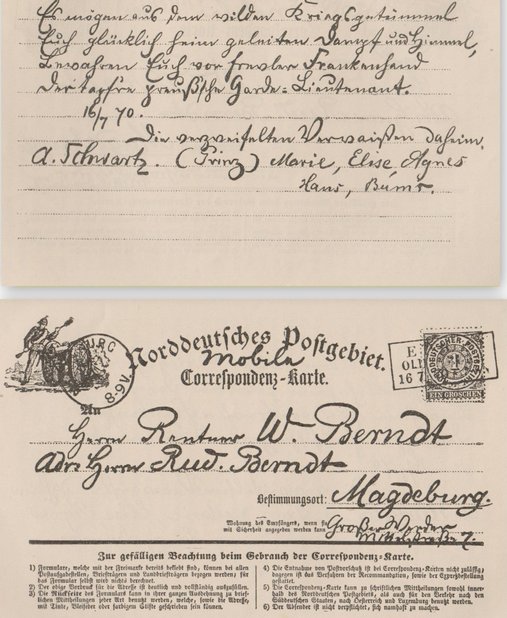 Es mögen aus dem wilden Kriegsgetümmel
Euch glücklich heim geleiten Dampf und Himmel,
Bewahren Euch vor frevler Frankenhand
Der tapfre preuß'sche Garde=Lieutenant.
16/7 70.
Die verzweifelten Verwaißten daheim.
A. Schwartz. (Prinz) Marie, Elise Agnes
Hans, Bums.
Norddeutsches Postgebiet.
Mobile
Correspondenz-Karte.
NORDDEUTSCHER POSTBEZIRK
EIN GROSCHEN
16 7
8-9 V.
An
Herrn Rentner W. Berndt
Adr. Herrn Rud. Berndt
Bestimmungsort: Magdeburg.
Wohnung des Empfängers, wenn sie
mit Sicherheit angegeben werden kann
Großer Werder
Mittelstraße 7.
Zur gefälligen Beachtung beim Gebrauch der Correspondenz-Karte.
1) Formulare, welche mit der Freimarke bereits beklebt sind, können bei allen
Postaufgabestellen, Briefträgern und Landbriefträgern bezogen werden; für
das Formular selbst wird nichts berechnet.
2) Der obige Vordruck für die Adresse ist deutlich und vollständig auszufüllen.
3) Die Rückseite des Formulars kann in ihrer ganzen Ausdehnung zu brief-
lichen Mittheilungen jeder Art benutzt werden, welche, sowie die Adresse,
mit Tinte, Bleifeder oder farbigem Stifte geschrieben sein können.
4) Die Entnahme von Postvorschuß ist bei Correspondenz-Karten nicht zulässig,
dagegen ist das Verfahren der Recommandation, sowie der Expreßbestellung
gestattet.
5) Die Correspondenz-Karte kann zu schriftlichen Mittheilungen sowohl inner-
halb des Norddeutschen Postgebiets, als auch für den Verkehr nach den
Süddeutschen Staaten, nach Oesterreich und Luxemburg benutzt werden.
6) Der Absender ist nicht verpflichtet, sich namhaft zu machen.